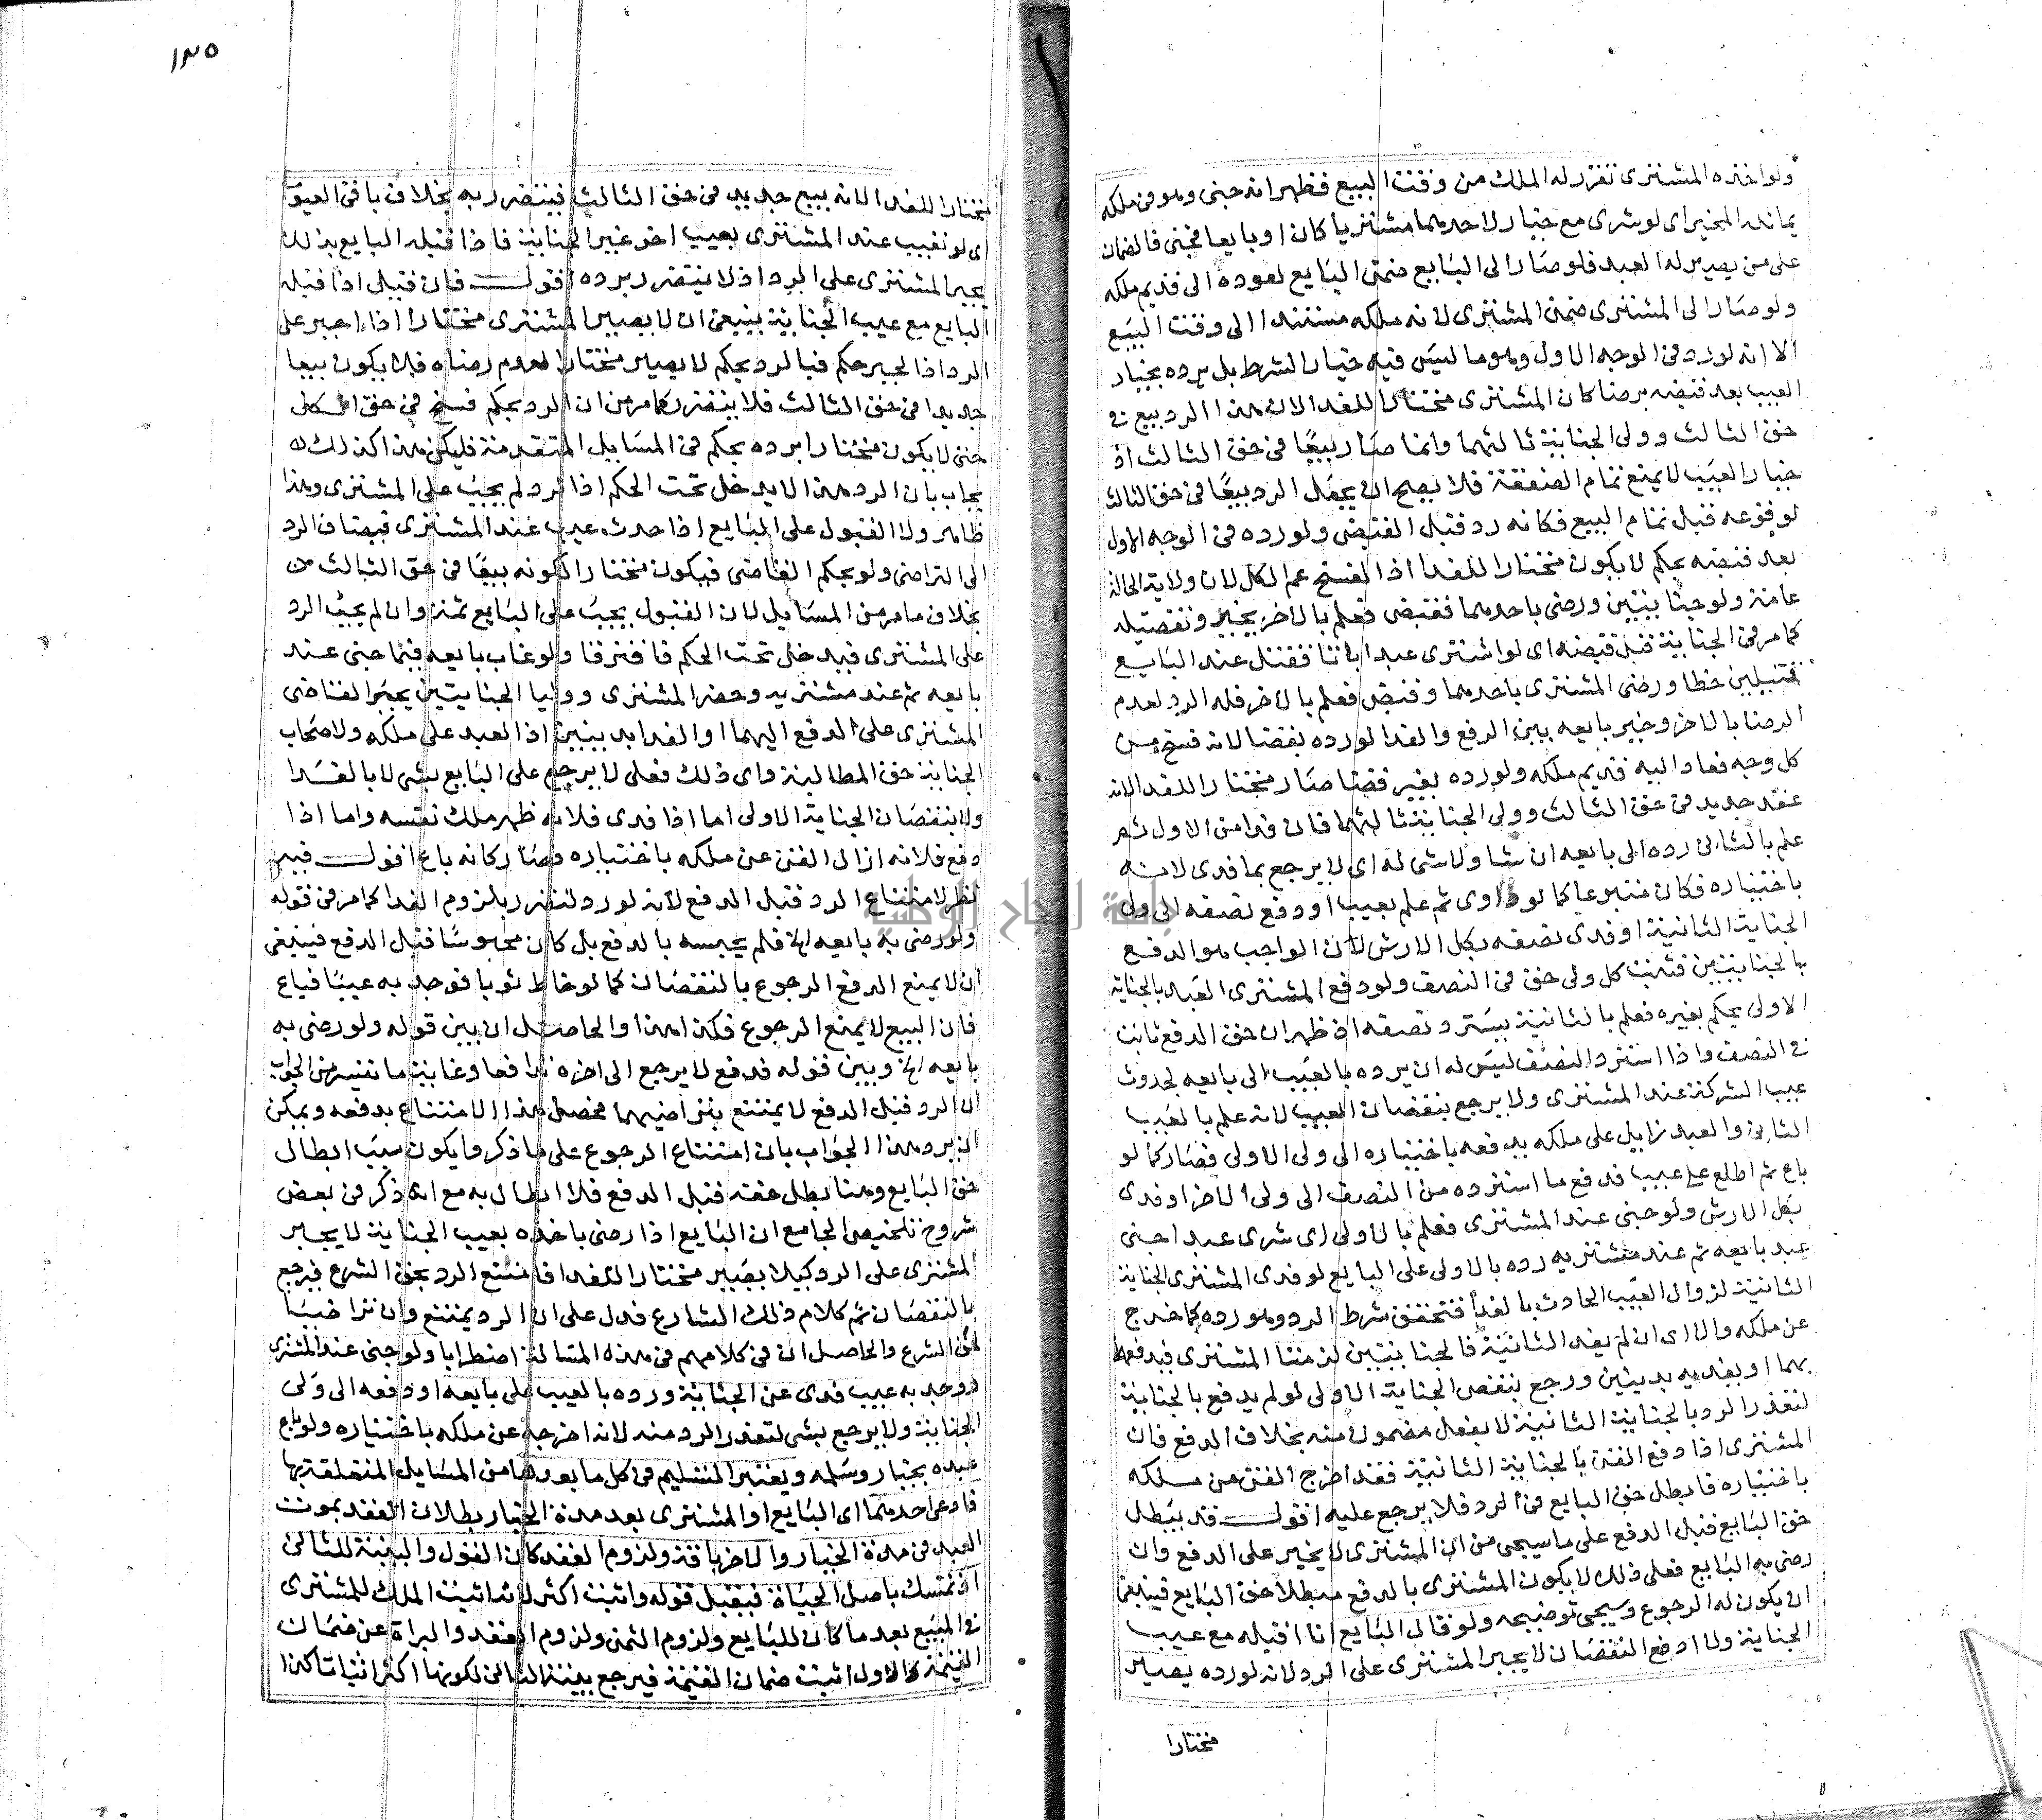 ولو اخذه المشترى تقرر له الملك من وقت البيع فظهر انه جنى وهو فى ملكه
يماثله المخير اى لو شرى مع خيار لاحدهما مشتريا كان او بايعا فجنى فالضمان
على من يصير له العبد فلو صار الى البايع ضمن البايع لعوده الى قديم ملكه
ولو صار الى المشترى ضمن المشترى لانه ملكه مستندا الى وقت البيع
الا انه لو رد فى الوجه الاول وهو ما ليس فيه خيار الشرط بل يرده بخيار
العيب بعد قبضه برضا كان المشترى مختارا للفدا لان هذا الرد بيع فى
حق الثالث وولى الجناية ثالثهما وانما صار بيعا فى حق الثالث اذ
خيار العيب لا يمنع تمام الصفقة فلا يصح ان يجعل الرد بيعا فى حق الثالث
لوقوعه قبل تمام البيع فكانه رد قبل القبض ولو رده فى الوجه الاول
بعد قبضه بحكم لا يكون مختارا للفدا اذ الفسخ عم الكل لان ولاية الحاكم
عامة ولو جنا بنتين ورضى باحدهما فقبض فعلم بالاخر يخير وتفصيله
كما مر فى الجناية قبل قبضه اى لو اشترى عبدا باتا فقتل عند البايع
قتيلين خطا ورضى المشترى باحدهما وقبض فعلم بالاخر فله الرد لعدم
الرضا بالاخر وخير بايعه بين الدفع والفدا لو رده بقضا لانه فسخ من
كل وجه فعاد اليه قديم ملكه ولو رده بغير قضا صار مختارا للفدا لانه
عقد جديد فى حق الثالث وولى الجناية ثالثهما فان فدا من الاول ثم
علم بالثانى رده الى بايعه ان شا ولا شى له اى لا يرجع بما فدى لانه
باختياره فكان متبرعا كما لو داوى ثم علم بعيب او دفع نصفه الى ولى
الجناية الثانية او فدى نصفه بكل الارش لان الواجب هو الدفع
بالجنايتين فثبت كل ولى حق فى النصف ولو دفع المشترى العبد بالجناية
الاولى بحكم بغيره فعلم بالثانية يسترد نصفه اذ ظهر ان حق الدفع ثابت
فى النصف واذا استرد النصف ليس له ان يرده بالعيب الى بايعه لحدوث
عيب الشركة عند المشترى ولا يرجع بنقصان العيب لانه علم بالعيب
الثانى والعبد زايل على ملكه بدفعه باختياره الى ولى الاولى فصار كما لو
باع ثم اطلع على عيب فدفع ما استرده من النصف الى ولى الاخر او فدى
بكل الارش ولو جنى عند المشترى فعلم بالاولى اى شرى عبدا جنى
عند بايعه ثم عند مشتريه رده بالاولى على البايع لو فدى المشترى الجناية
الثانية لزوال العيب الحادث بالفدا فتحقق شرط الرد وهو رده كما خرج
عن ملكه والا اى ان لم يفد الثانية فالجنايتين لزمتا المشترى فيدفعه
بهما او يفديه بديتين ورجع بنقص الجناية الاولى لو لم يدفع بالجناية
لتعذر الرد بالجناية الثانية لا بفعل مضمون منه بخلاف الدفع فان
المشترى اذا دفع القن بالجناية الثانية فقد اخرج القن من ملكه
باختياره فابطل حق البايع فى الرد فلا يرجع عليه اقول قد يبطل
حق البايع قبل الدفع على ما سيجى من ان المشترى لا يخير على الدفع وان
رضى به البايع فعلى ذلك لا يكون المشترى بالدفع مبطلا حق البايع فينبغى
ان يكون له الرجوع وسيجى توضيحه ولو قال البايع انا اقبله مع عيب
الجناية ولا ادفع النقصان لا يجبر المشترى على الرد لانه لو رده يصير
مختارا
١٣٥
مختارا للفدا لانه بيع جديد فى حق الثالث فيتضرر به بخلاف باقى العيوب
اى لو تعيب عند المشترى بعيب اخر غير الجناية فاذا قبله البايع بذلك
يجبر المشترى على الرد اذ لا يتضرر برده اقول فان قيل اذا قبله
البايع مع عيب الجناية ينبغى ان لا يصير المشترى مختارا اذا اجبر على
الرد اذ الجبر حكم فبالرد بحكم لا يصير مختارا لعدم رضاه فلا يكون بيعا
جديدا فى حق الثالث فلا يتضرر كما مر من ان الرد بحكم فسخ فى حق الكل
حتى لا يكون مختارا برده بحكم فى المسايل المتقدمة فليكن هذا كذلك
يجاب بان الرد هذا لا يدخل تحت الحكم اذ الرد لم يجب على المشترى وهذا
ظاهر ولا القبول على البايع اذا حدث عيب عند المشترى فيصاف الرد
الى التراضى ولو بحكم القاضى فيكون مختارا لكونه بيعا فى حق الثالث من
بخلاف ما مر من المسايل لان القبول يجب على البايع ثمة وان لم يجب الرد
على المشترى فيدخل تحت الحكم فافترقا ولو غاب بايعه فيما جنى عند
بايعه ثم عند مشتريه وحضر المشترى ووليا الجنايتين يجبر القاضى
المشترى على الدفع اليهما او الفدا بديتين اذ العبد على ملكه ولاصحاب
الجناية حق المطالبة واى ذلك فعل لا يرجع على البايع بشى لا بالفدا
ولا بنقصان الجناية الاولى اما اذا فدى فلانه ظهر ملك نفسه واما اذا
دفع فلانه ازال القن عن ملكه باختياره فصار كانه باع اقول فيه
نظر لامتناع الرد قبل الدفع لانه لو رد لتضرر بلزوم الفدا كما مر فى قوله
ولو رضى به بايعه الخ فلم يحبسه بالدفع بل كان محبوسا قبل الدفع فينبغى
ان لا يمنع الدفع الرجوع بالنقصان كما لو خاط ثوبا فوجد به عيبا فباع
فان البيع لا يمنع الرجوع فكذا هذا والحاصل ان بين قوله ولو رضى به
بايعه الخ وبين قوله فدفع لا يرجع الى اخره تدافعا وغاية ما تفيد من الجواب
ان الرد قبل الدفع لا يمتنع بتراضيهما فحصل هذا الامتناع بدفعه ويمكن
ان يرد هذا الجواب بان امتناع الرجوع على ما ذكر وا يكون سبب ابطال
حق البايع وهنا بطل حقه قبل الدفع فلا ابطال به مع انه ذكر فى بعض
شروح تلخيص الجامع ان البايع اذا رضى باخذه بعيب الجناية لا يجبر
المشترى على الرد كيلا يصير مختارا للفدا فامتنع الرد بحق الشرع فيرجع
بالنقصان تم كلام ذلك الشارع فدل على ان الرد يمتنع وان تراضيا
لحق الشرع والحاصل ان فى كلامهم فى هذه المسالة اضطرابا ولو جنى عند المشترى
ووجد به عيب فدى عن الجناية ورده بالعيب على بايعه او دفعه الى ولى
الجناية ولا يرجع بشى لتعذر الرد منه لانه اخرجه عن ملكه باختياره ولو باع
عبده بخيار وسلمه ويعتبر التسليم فى كل ما يورد هنا من المسايل المتعلقة بها
فادعى احدهما اى البايع او المشترى بعد مدة الخيار بطلان العقد بموت
العبد فى مدة الخيار والاخر باقه ولزوم العقد كان القول والبينة للثانى
اذ تمسك باصل الحياة فيقبل قوله واثبت اكثر لانه اثبت الملك للمشترى
فى المبيع بعد ما كان للبايع ولزوم الثمن ولزوم العقد والبراة عن ضمان
القيمة والاول اثبت ضمان القيمة فيرجع بينة الثانى لكونها اكثر اثباتا كذا